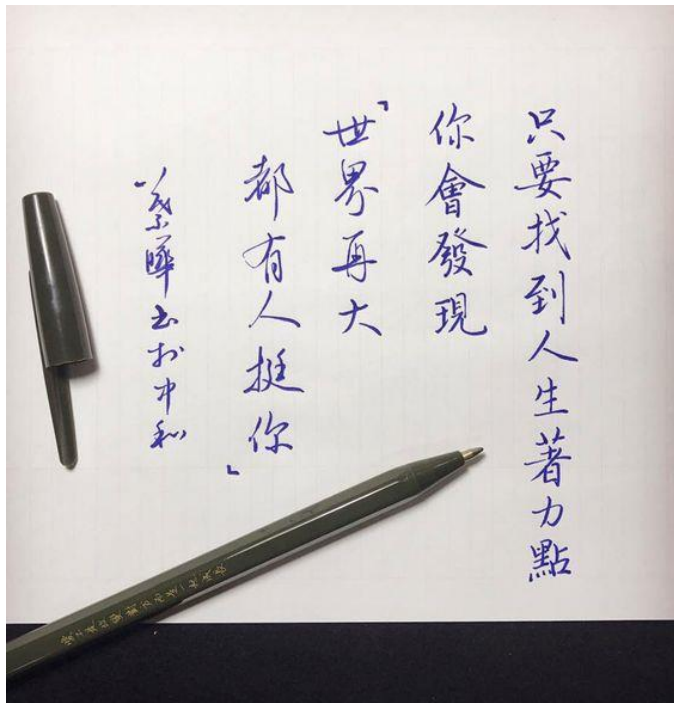 只要找到人生著力點
你會發現
「世界再大
都有人挺你」
書於中和